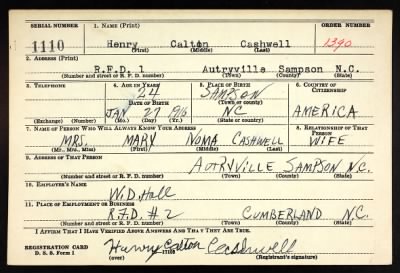 SERIAL NUMBER 1. NAME (Print) ORDER NUMBER
1110 Henry Calton Cashwell 1390
(First) (Middle) (Last)
2. ADDRESS (Print)
R.F.D. 1 Autryville Sampson N.C.
(Number and street or R. F. D. number) (Town) (County) (State)
3. TELEPHONE 4. AGE IN YEARS 5. PLACE OF BIRTH 6. COUNTRY OF CITIZENSHIP
24 SAMPSON
DATE OF BIRTH (Town or county)
JAN 27 1916 NC AMERICA
(Exchange) (Number) (Mo.) (Day) (Yr.) (State or country)
7. NAME OF PERSON WHO WILL ALWAYS KNOW YOUR ADDRESS 8. RELATIONSHIP OF THAT PERSON
MRS. MARY NOMA CASHWELL WIFE
(Mr., Mrs., Miss) (First) (Middle) (Last)
9. ADDRESS OF THAT PERSON
AUTRYVILLE SAMPSON N.C.
(Number and street or R. F. D. number) (Town) (County) (State)
10. EMPLOYER'S NAME
W.D. Hall
11. PLACE OF EMPLOYMENT OR BUSINESS
R.F.D. #2 CUMBERLAND N.C.
(Number and street or R. F. D. number) (Town) (County) (State)
I AFFIRM THAT I HAVE VERIFIED ABOVE ANSWERS AND THAT THEY ARE TRUE.
REGISTRATION CARD
D. S. S. Form 1 (over) Henry Calton Cashwell